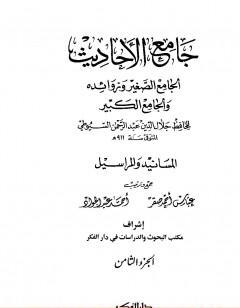 جامع الأحاديث
الجامع الصغير وزوائده
والجامع الكبير
للحافظ جلال الدين عبد الرحمن السيوطي
المتوفى سنة ٩١١ هـ
المسانيد والمراسيل
جمع وترتيب
عباس أحمد صقر أحمد عبد الجواد
إشراف
مكتب البحوث والدراسات في دار الفكر
الجزء الثامن